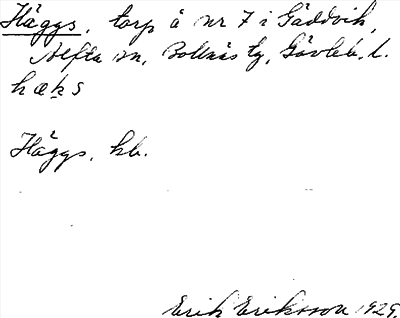 Häggs, torp å nr 7 i Gäddvik,
Alfta sn, Bollnäs tg, Gävleb. l.
hæk̠s
Häggs, kb.
Erik Eriksson 1929.